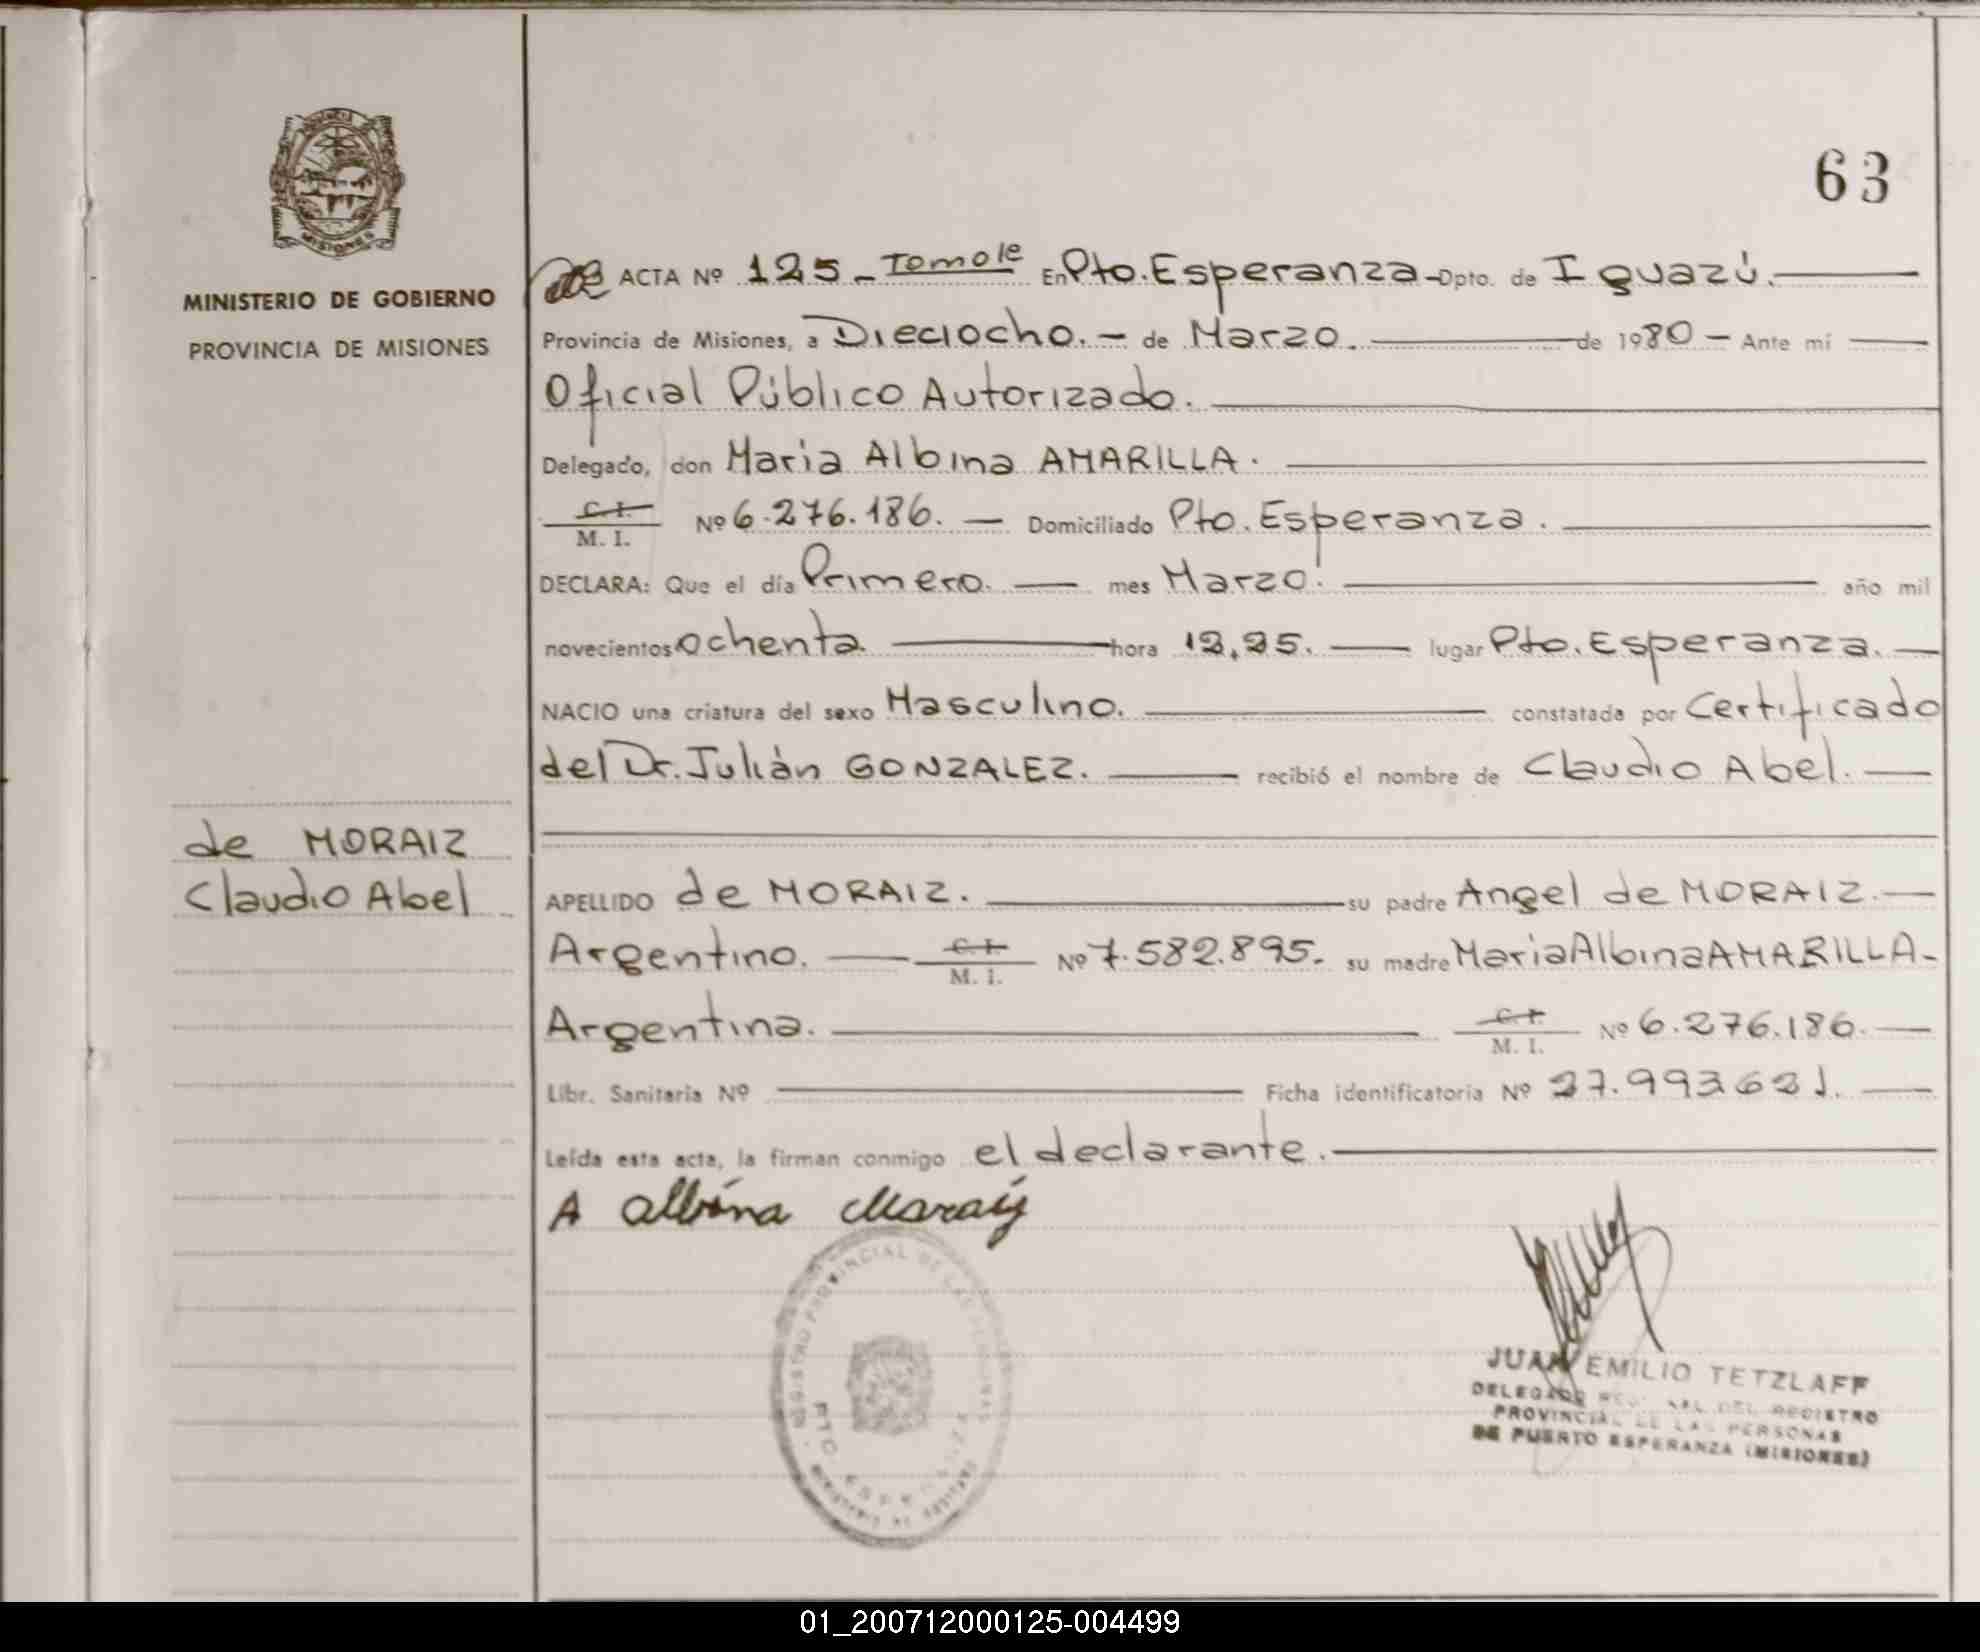 63
MISIONES
MINISTERIO DE GOBIERNO
PROVINCIA DE MISIONES
de MORAIZ
Claudio Abel
ACTA Nº 125 - Tomo Ie En Pto. Esperanza - Dpto. de Iguazú.
Provincia de Misiones, a Dieciocho. - de Marzo. de 1980 - Ante mí
Oficial Público Autorizado.
Delegado, don Maria Albina AMARILLA.
C. I.
M. I. Nº 6.276.186. - Domiciliado Pto. Esperanza.
DECLARA: Que el día Primero. mes Marzo. año mil
novecientos ochenta hora 12,25. lugar Pto. Esperanza.
NACIO una criatura del sexo Masculino. constatada por Certificado
del Dr. Julián GONZALEZ. recibió el nombre de Claudio Abel.
APELLIDO de MORAIZ. su padre Angel de MORAIZ.
Argentino. C. I.
M. I. Nº 7.582.895. su madre Maria Albina AMARILLA-
Argentina. C. I.
M. I. Nº 6.276.186.
Libr. Sanitaria Nº Ficha identificatoria Nº 27.993621.
Leída esta acta, la firman conmigo el declarante.
A albina Maraiz
REGISTRO PROVINCIAL DE LAS PERSONAS
PTO. ESPERANZA
JUAN EMILIO TETZLAFF
DELEGADO REGIONAL DEL REGISTRO
PROVINCIAL DE LAS PERSONAS
DE PUERTO ESPERANZA (MISIONES)
01_200712000125-004499